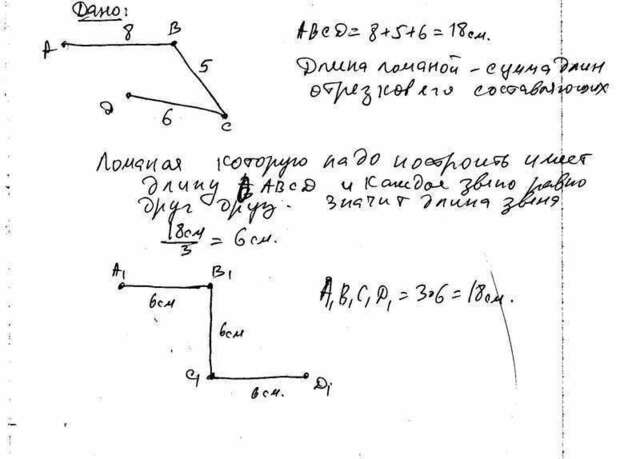 Дано:
A 8 B
5
D 6 C
ABCD = 8+5+6 = 18см.
Длина ломаной - сумма длин
отрезков его составляющих
Ломаная которую надо построить имеет
длину ABCD и каждое звено равно
друг другу. Значит длина звена
18см/3 = 6см.
A₁ B₁
6см
6см
C₁ D₁
6см.
A₁B₁C₁D₁ = 3·6 = 18см.